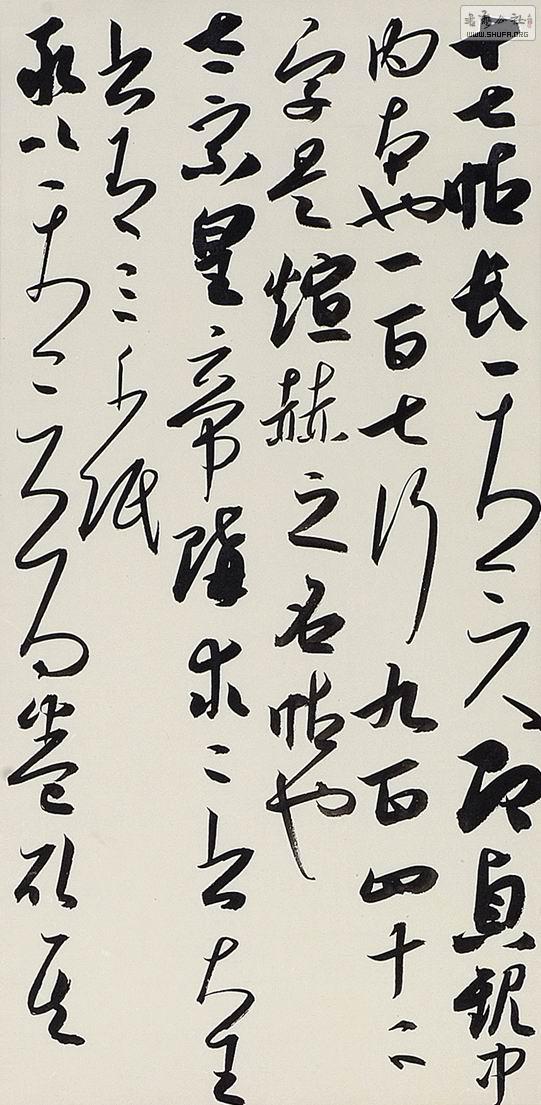 WWW.SHUFA.ORG
十七帖長一丈二尺即貞觀中
內本也一百七行九百四十二
字是煊赫之名帖也
太宗皇帝購求二書大王
書有三千紙
率以一丈二尺為卷取其